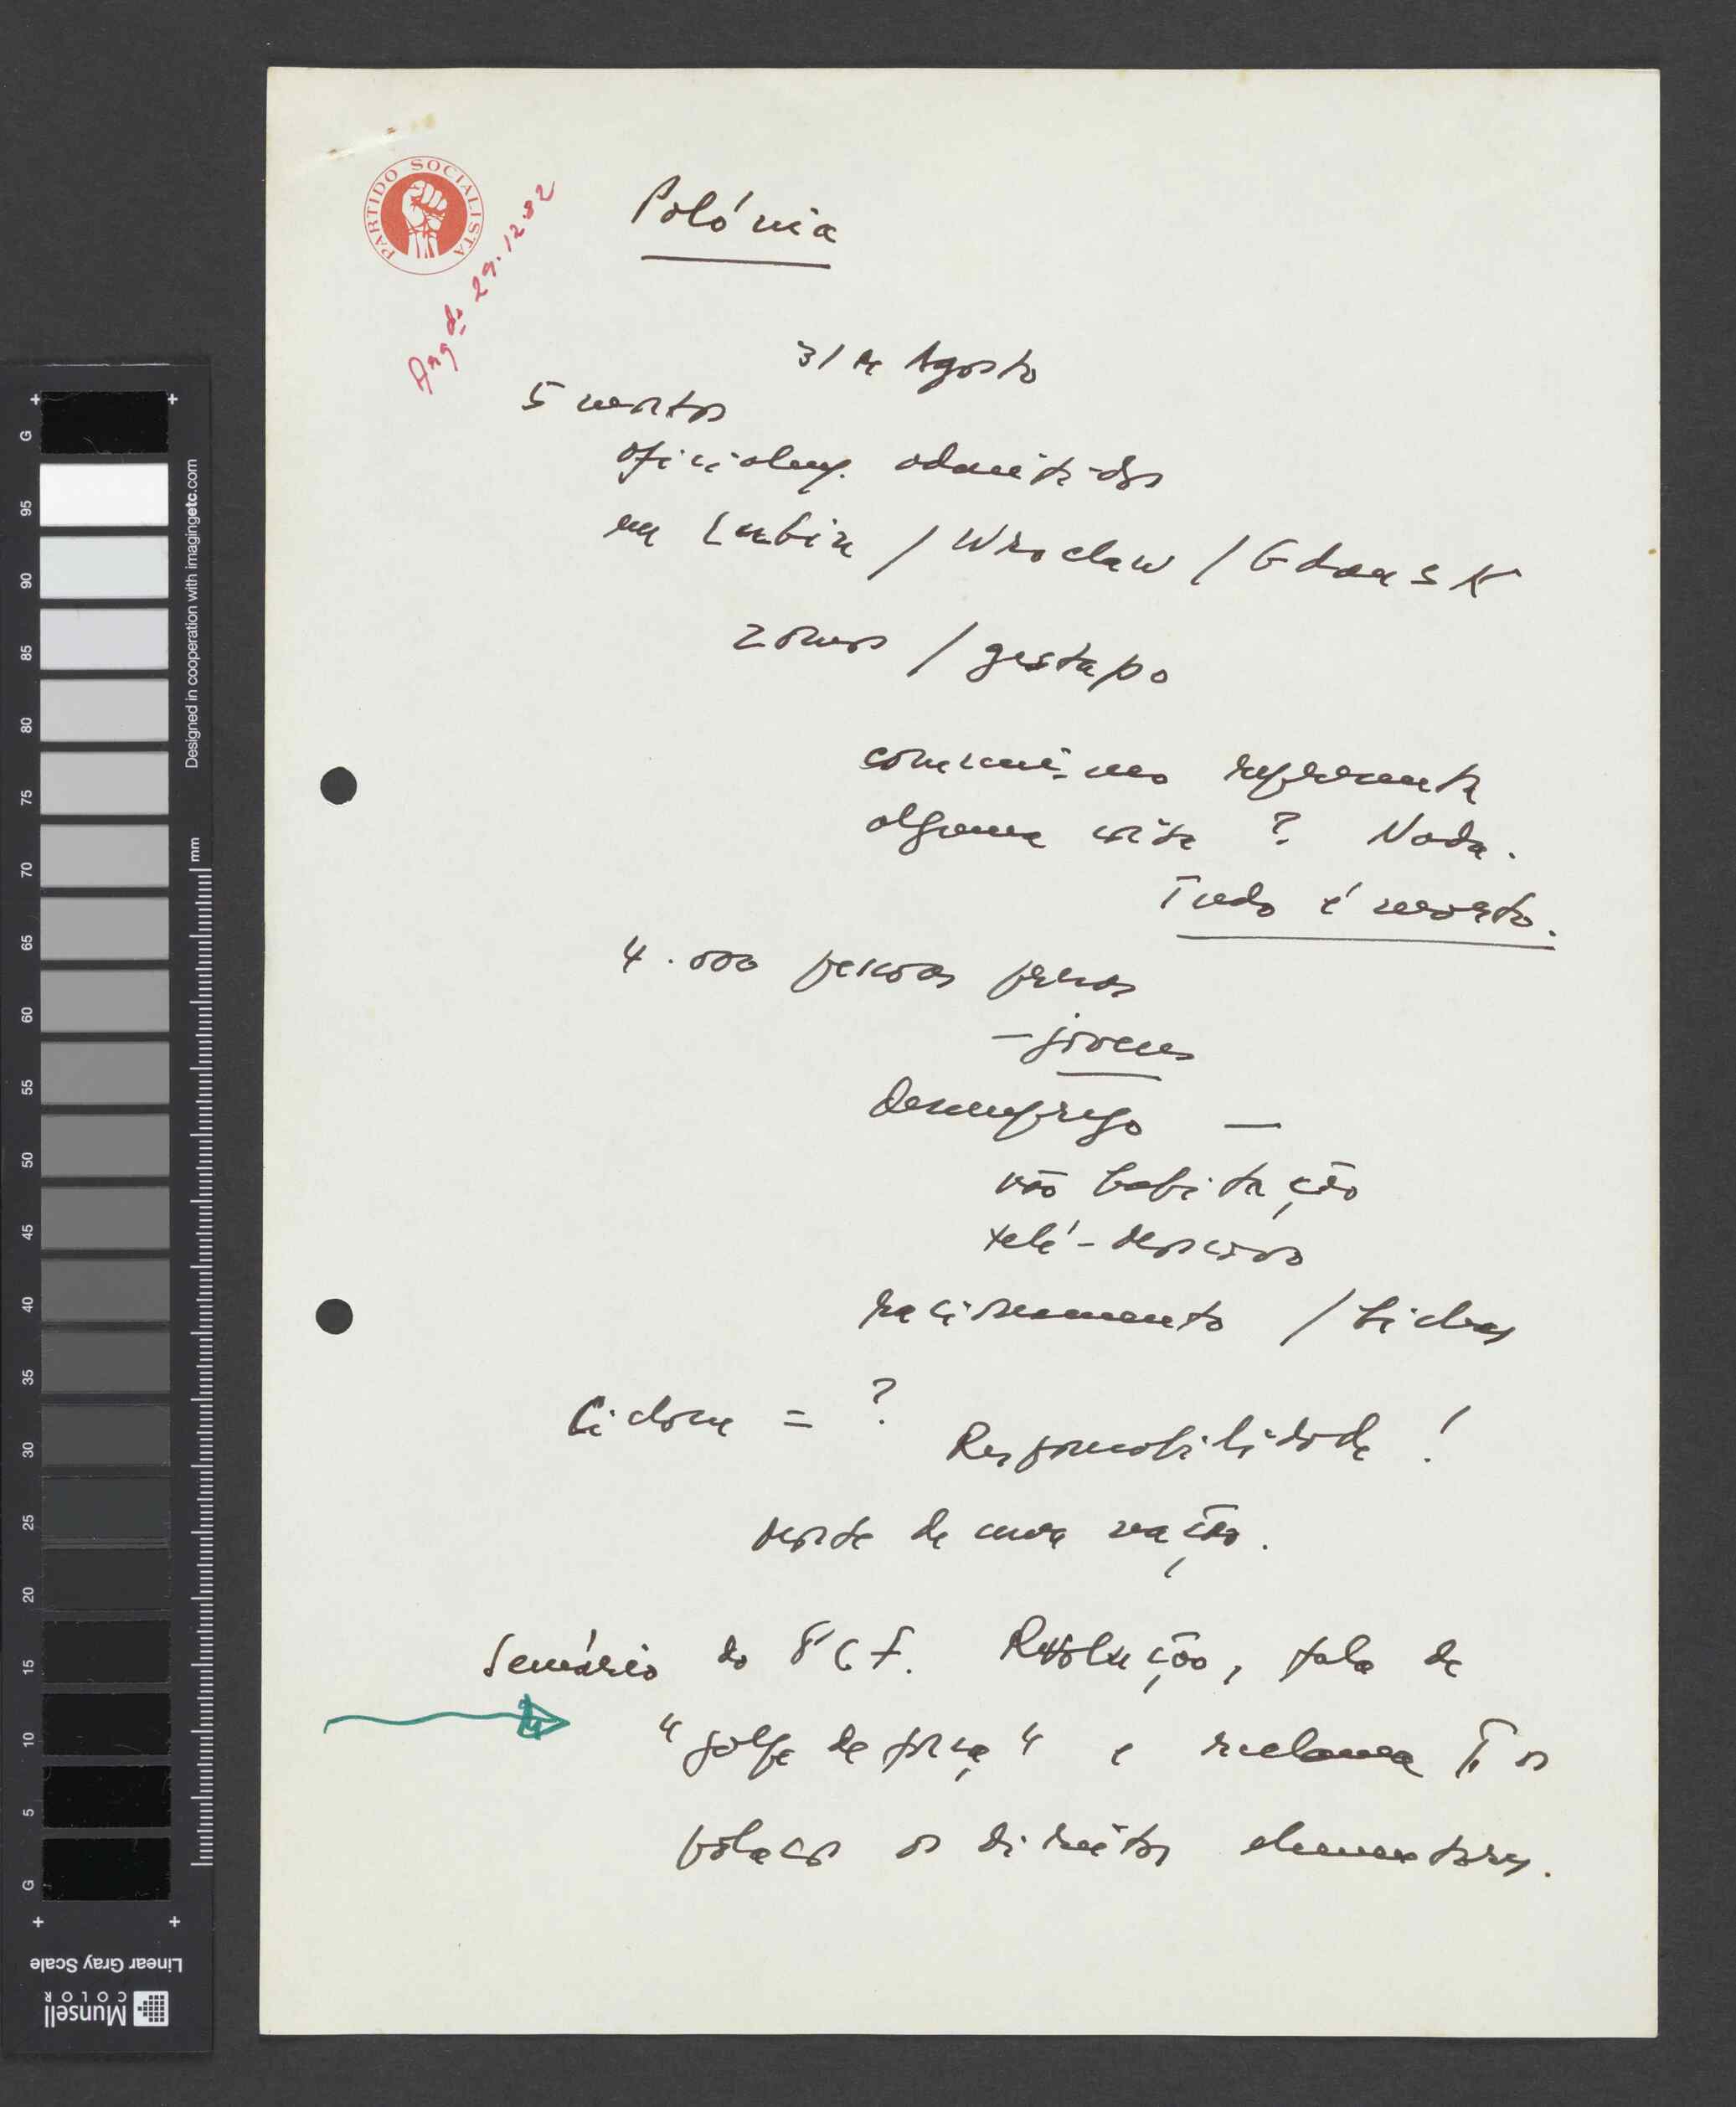 PARTIDO SOCIALISTA
Arq do 29.12.82
Polónia
31 de Agosto
5 mortos
oficialm. admitidos
em Lubin / Wroclaw / Gdansk
zomos / gestapo
comunismo representa
alguma coisa ? Nada.
Tudo é morto.
4.000 pessoas presas
- jovens
Desemprego —
não habitação
telé-
racionamento / bichas
Ciclone = ?
Responsabilidade !
de uma nação.
Semanário do PCF. Revolução, fala de
"golpe de força" e reclama p. os
polacos os direitos elementares.
G
95
90
85
80
75
70
65
60
55
50
45
40
35
30
25
20
15
10
5
G
mm
Designed in cooperation with imagingetc.com
Linear Gray Scale
Munsell
COLOR